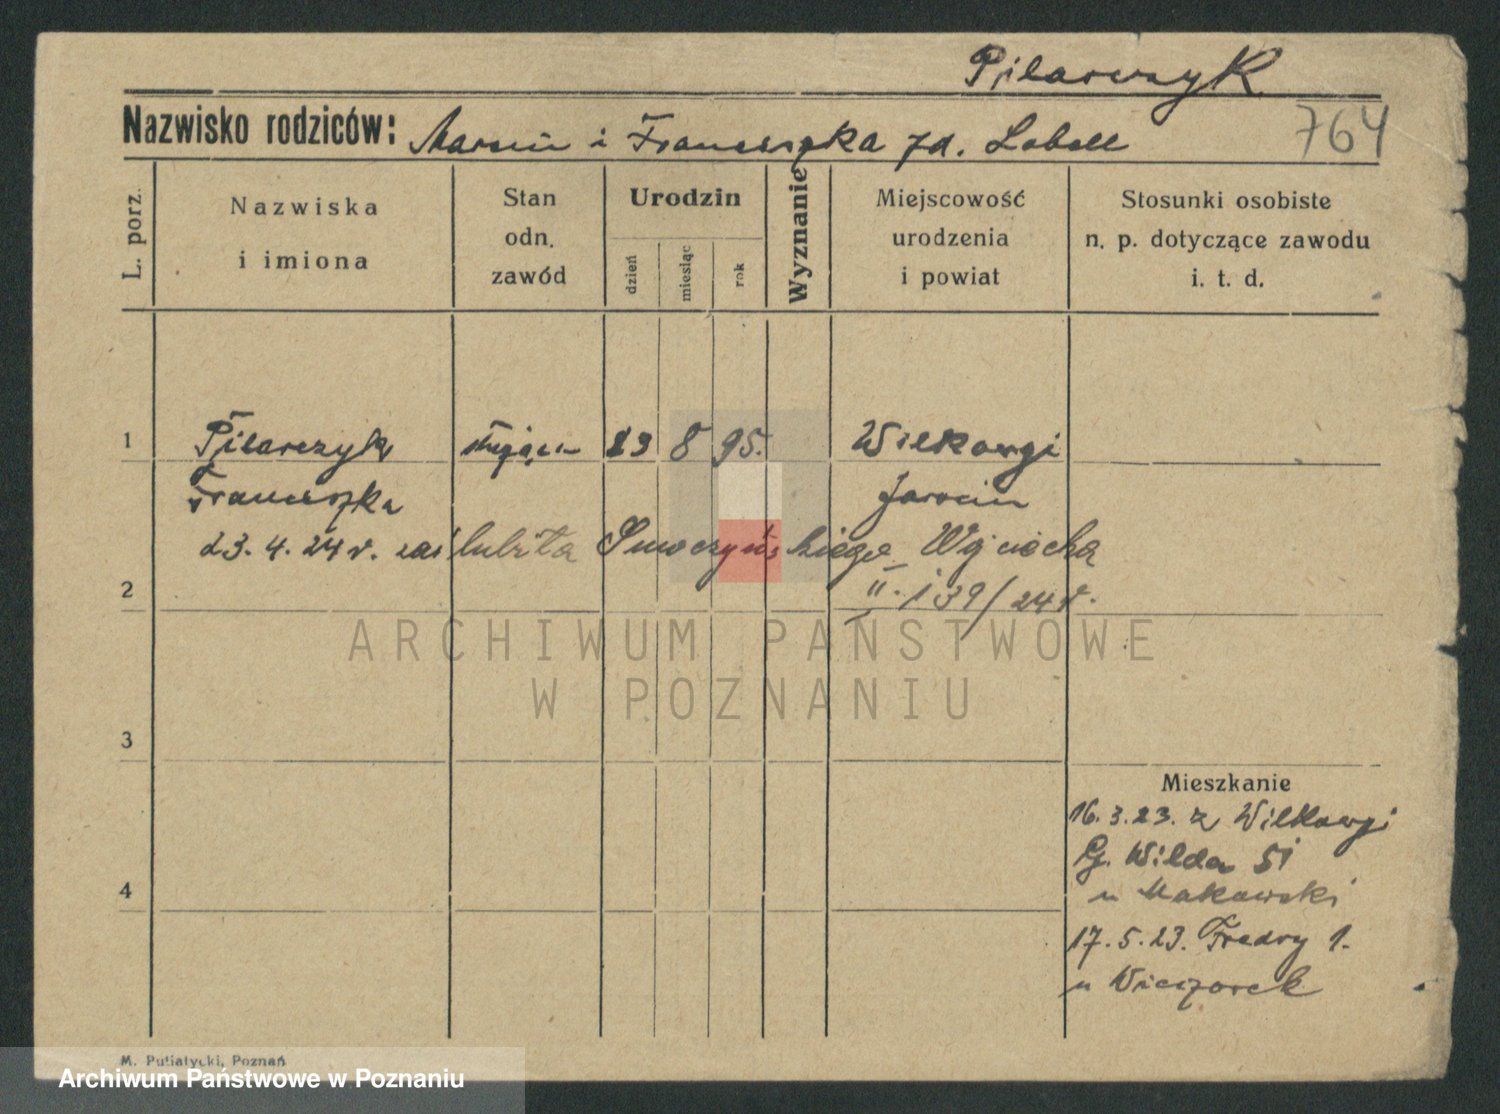 Pilarczyk
Nazwisko rodziców: Marcin i Franciszka zd. Laball
764
L. porz.
Nazwiska
i imiona
Stan
odn.
zawód
Urodzin
dzień
miesiąc
rok
Wyznanie
Miejscowość
urodzenia
i powiat
Stosunki osobiste
n. p. dotyczące zawodu
i. t. d.
1
Pilarczyk służąca 23 8 95. Wilkowyi
Franciszka Jarocin
23.4.24 r. zaślubiła Smoczyńskiego Wojciecha
2
II. 139/24 r.
ARCHIWUM PAŃSTWOWE
W POZNANIU
3
Mieszkanie
16.3.23. z Wilkowyi
G. Wilda 51
4
u Makowski
17.5.23. Fredry 1.
u Wieczorek
M. Putiatycki, Poznań
Archiwum Państwowe w Poznaniu